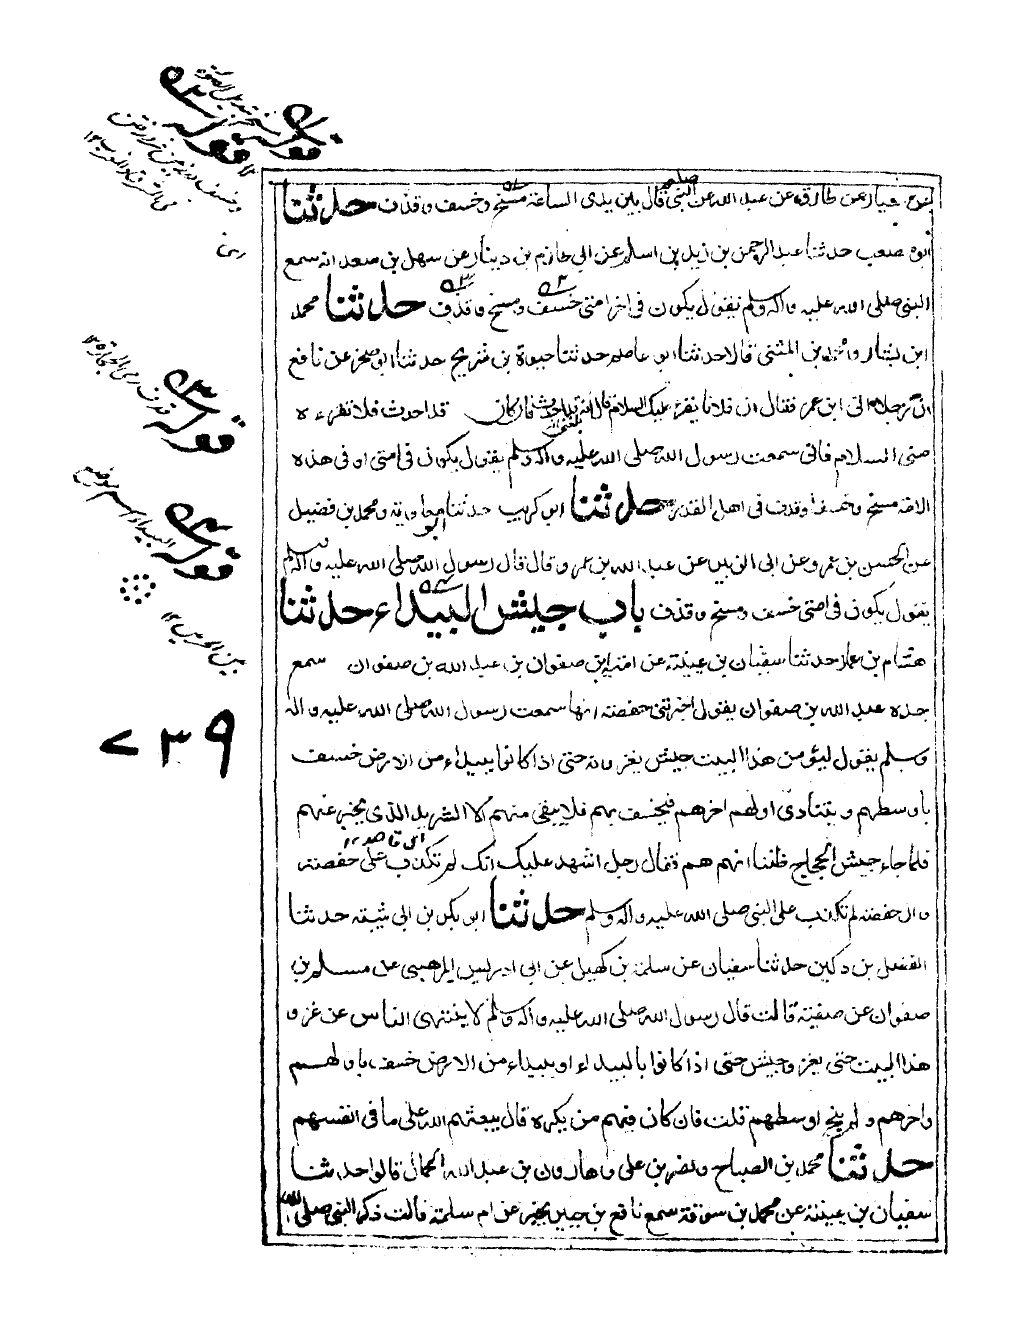 عن سيار عن طارق عن عبد الله عن النبي صلعم قال بين يدي الساعة مسخ وخسف وقذف حدثنا
ابو مصعب حدثنا عبد الرحمن بن زيد بن اسلم عن ابي حازم بن دينار عن سهل بن سعد انه سمع
النبي صلى الله عليه واله وسلم يقول يكون في اخر امتي خسف ومسخ وقذف حدثنا محمد
ابن بشار ومحمد بن المثنى قالا حدثنا ابو عاصم حدثنا حيوة بن شريح حدثنا ابو صخر عن نافع
ان رجلا اتى ابن عمر فقال ان فلانا يقرء عليك السلام قال انه بلغني انه قد احدث فان كان قد احدث فلا تقرءه
مني السلام فاني سمعت رسول الله صلى الله عليه واله وسلم يقول يكون في امتي او في هذه
الامة مسخ وخسف وقذف في اهل القدر حدثنا ابو كريب حدثنا ابو معاوية ومحمد بن فضيل
عن الحسن بن عمرو عن ابي الزبير عن عبد الله بن عمرو قال قال رسول الله صلى الله عليه واله وسلم
يقول يكون في امتي خسف ومسخ وقذف باب جيش البيداء حدثنا
هشام بن عمار حدثنا سفيان بن عيينة عن امية بن صفوان بن عبد الله بن صفوان سمع
جده عبد الله بن صفوان يقول اخبرتني حفصة انها سمعت رسول الله صلى الله عليه واله
وسلم يقول ليؤمن هذا البيت جيش يغزونه حتى اذا كانوا ببيداء من الارض خسف
باوسطهم ويتنادى اولهم اخرهم فيخسف بهم فلا يبقى منهم الا الشريد الذي يخبر عنهم
اي قاصد ١٢
فلما جاء جيش الحجاج ظننا انهم هم فقال رجل اشهد عليك انك لم تكذب على حفصة
وان حفصة لم تكذب على النبي صلى الله عليه واله وسلم حدثنا ابو بكر بن ابي شيبة حدثنا
الفضل بن دكين حدثنا سفيان عن سلمة بن كهيل عن ابي ادريس المرهبي عن مسلم بن
صفوان عن صفية قالت قال رسول الله صلى الله عليه واله وسلم لا ينتهي الناس عن غزو
هذا البيت حتى يغزو جيش حتى اذا كانوا بالبيداء او ببيداء من الارض خسف باولهم
واخرهم ولم ينج اوسطهم قلت فان كان فيهم من يكره قال يبعثهم الله على ما في انفسهم
حدثنا محمد بن الصباح ونصر بن علي وهارون بن عبد الله الحمال قالوا حدثنا
سفيان بن عيينة عن محمد بن سوقة سمع نافع بن جبير يخبر عن ام سلمة قالت ذكر النبي صلى الله
قوله
قوله
١٢
قوله
قذف رمى الحجارة ١٢
قوله
البيداء اسم موضع
بين الحرمين ١٢
٧٣٩